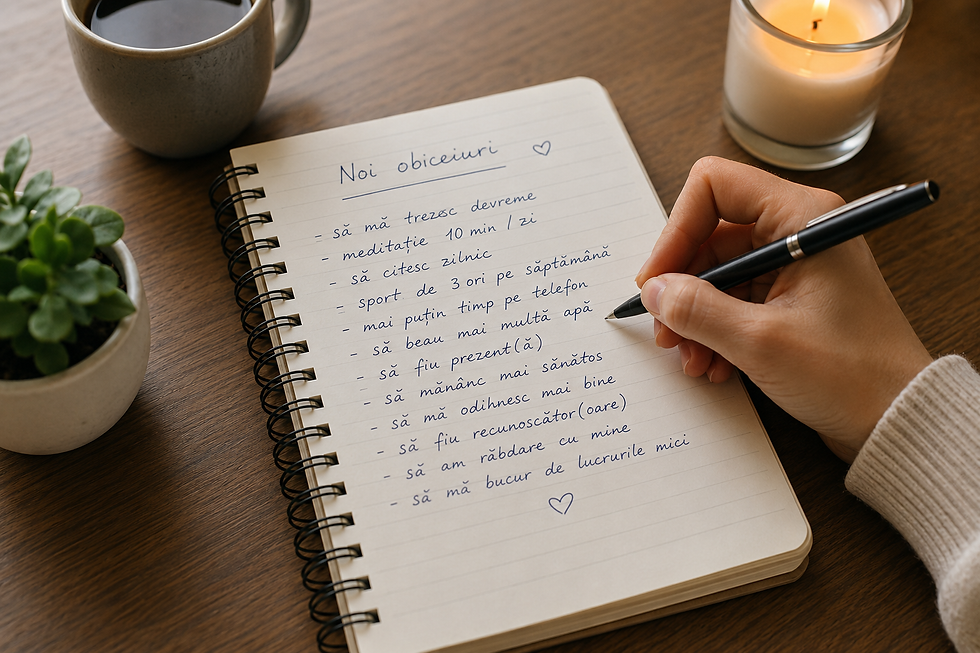 Noi obiceiuri ♡
- să mă trezesc devreme
- meditație 10 min / zi
- să citesc zilnic
- sport de 3 ori pe săptămână
- mai puțin timp pe telefon
- să beau mai multă apă
- să fiu prezent(ă)
- să mănânc mai sănătos
- să mă odihnesc mai bine
- să fiu recunoscător(oare)
- să am răbdare cu mine
- să mă bucur de lucrurile mici
♡